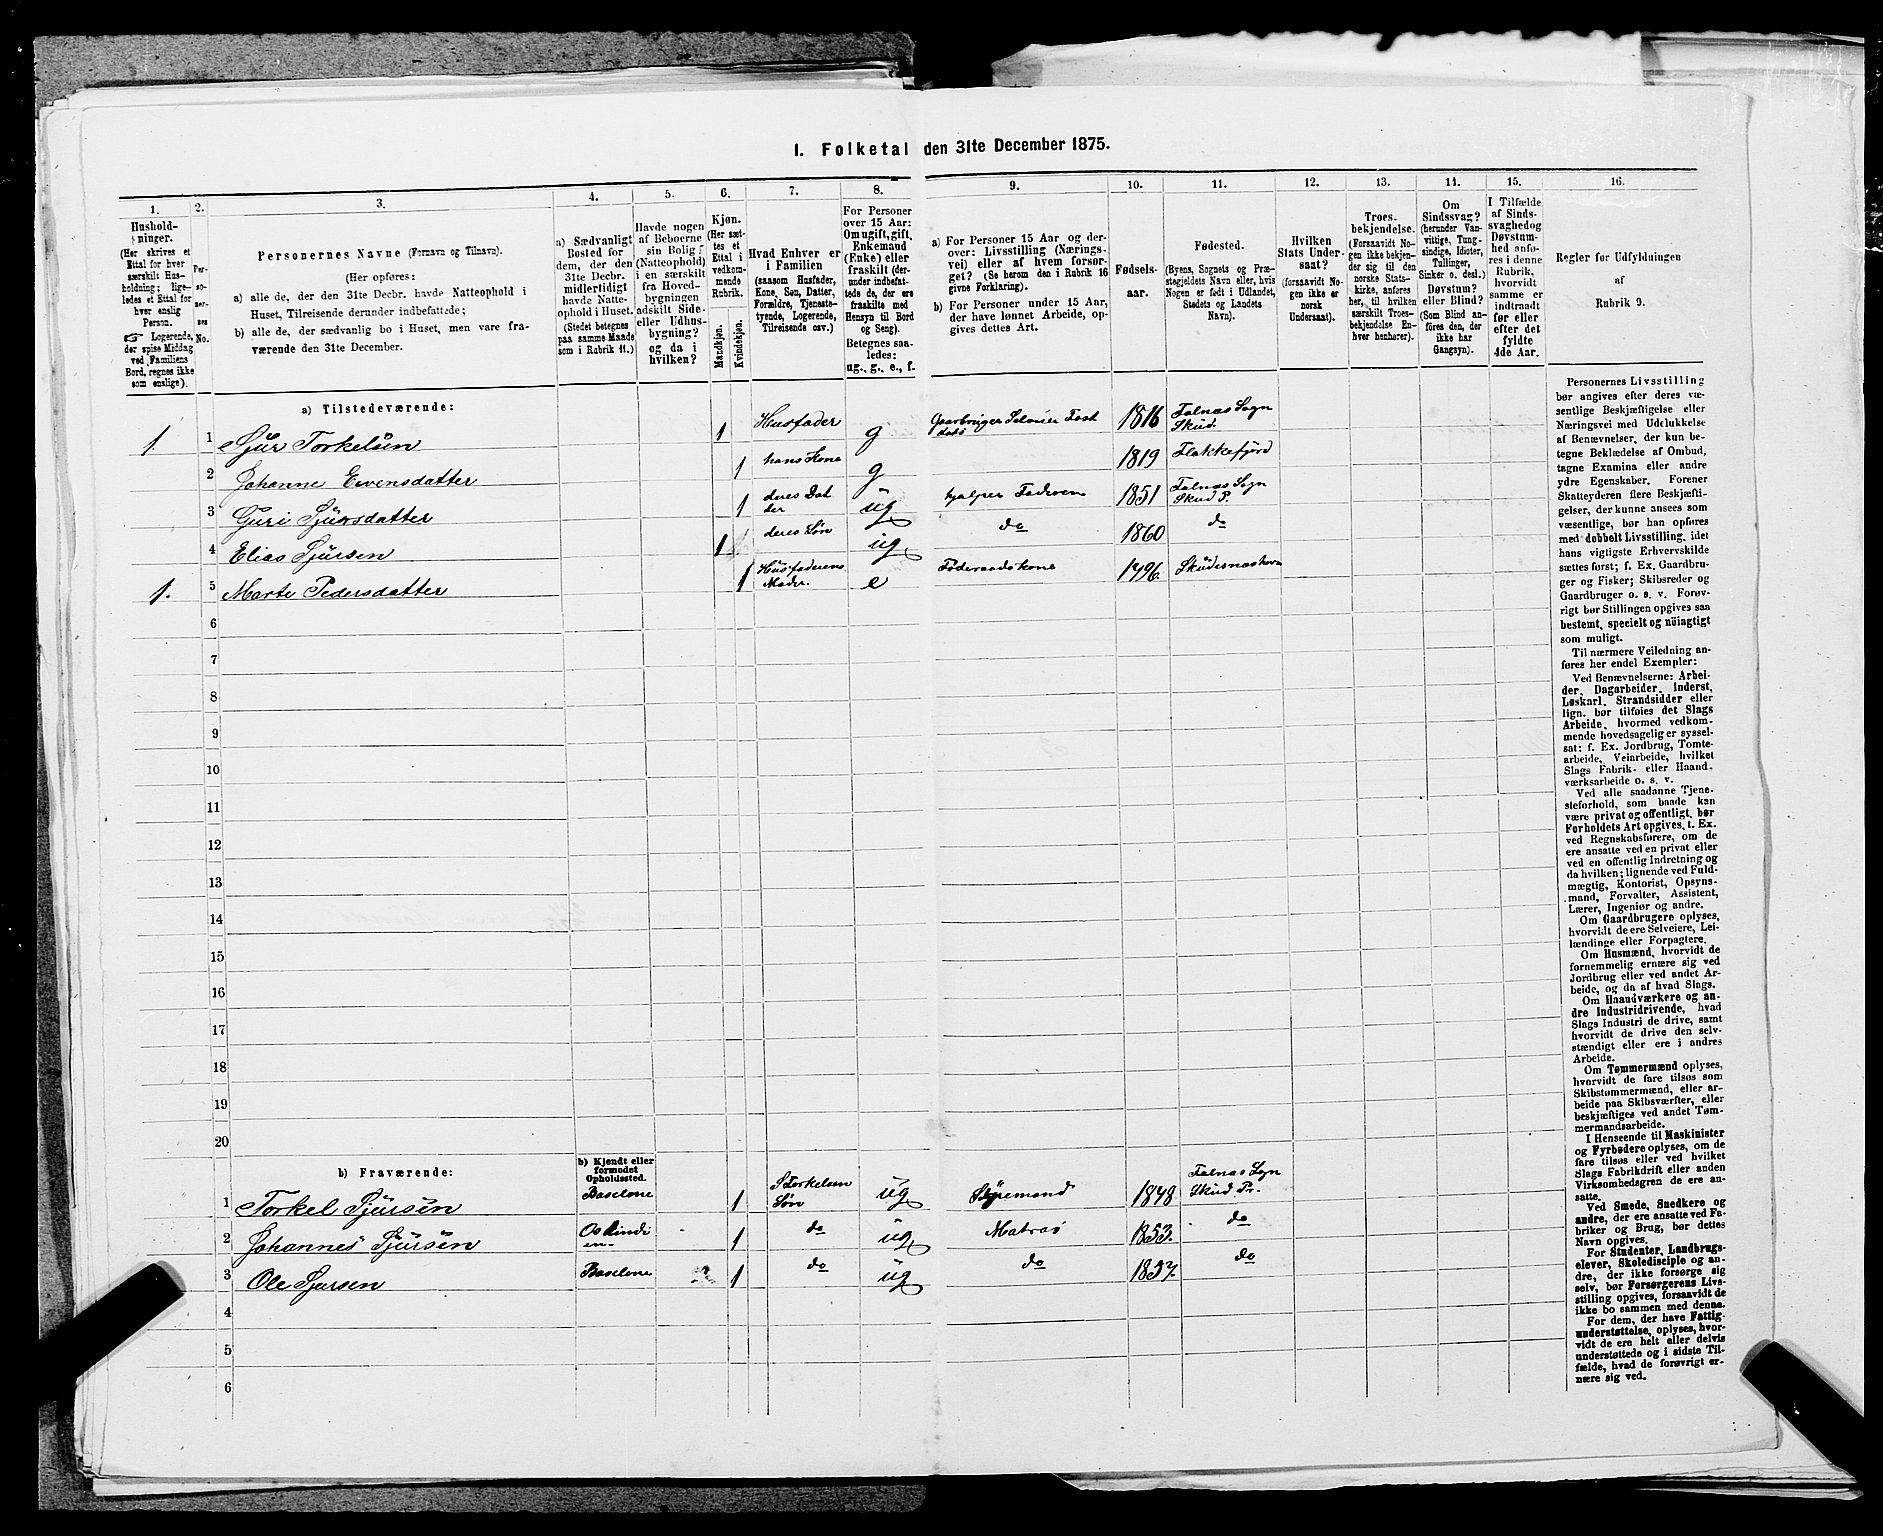 I. Folketal den 31te December 1875.
1. 2. 3. 4. 5. 6. 7. 8. 9. 10. 11. 12. 13. 14. 15. 16.
Hushold-
ninger.
(Her skrives et
Ettal for hver
særskilt Hus-
holdning; lige-
ledes et Ettal for
hver enslig
Person.
☞ Logerende,
der spise Middag
ved Familiens
Bord, regnes ikke
som enslige).
Per-
so-
ner-
nes
No.
Personernes Navne (Fornavn og Tilnavn).
(Her opføres:
a) alle de, der den 31te Decbr. havde Natteophold i
Huset, Tilreisende derunder indbefattede;
b) alle de, der sædvanlig bo i Huset, men vare fra-
værende den 31te December.
a) Sædvanligt
Bosted for
dem, der den
31te Decbr.
midlertidigt
havde Natte-
ophold i Huset.
(Stedet betegnes
paa samme Maade
som i Rubrik 11.)
Havde nogen
af Beboerne
sin Bolig
(Natteophold)
i en særskilt
fra Hoved-
bygningen
adskilt Side-
eller Udhus-
bygning?
og da i
hvilken?
Kjøn.
(Her sæt-
tes et
Ettal i
vedkom-
mende
Rubrik.
Mandkjøn.
Kvindekjøn.
Hvad Enhver er
i Familien
(saasom Husfader,
Kone, Søn, Datter,
Forældre, Tjeneste-
tyende, Logerende,
Tilreisende osv.)
For Personer
over 15 Aar:
Om ugift, gift,
Enkemand
(Enke) eller
fraskilt (der-
under indbefat-
tede de, der ere
fraskilte med
Hensyn til Bord
og Seng).
Betegnes saa-
ledes:
ug., g., e., f.
a) For Personer 15 Aar og der-
over: Livsstilling (Nærings-
vei) eller af hvem forsør-
get? (Se herom den i Rubrik 16
givne Forklaring).
b) For Personer under 15 Aar,
der have lønnet Arbeide, op-
gives dettes Art.
Fødsels-
aar.
Fødested.
(Byens, Sognets og Præ-
stegjeldets Navn eller, hvis
Nogen er født i Udlandet,
Stedets og Landets
Navn).
Hvilken
Stats Under-
saat?
(forsaavidt No-
gen ikke er
norsk
Undersaat).
Troes-
bekjendelse.
(Forsaavidt No-
gen ikke bekjen-
der sig til den
norske Stats-
kirke, anføres
her, til hvilken
særskilt Troes-
bekjendelse En-
hver henhører).
Om
Sindssvag?
(herunder Van-
vittige, Tung-
sindige, Idioter,
Tullinger,
Sinker o. desl.)
Døvstum?
eller Blind?
(Som Blind an-
føres den, der
ikke har
Gangsyn).
I Tilfælde
af Sinds-
svaghed og
Døvstum-
hed anfø-
res i denne
Rubrik,
hvorvidt
samme er
indtraadt
før eller
efter det
fyldte
4de Aar.
Regler for Udfyldningen
af
Rubrik 9.
a) Tilstedeværende:
1 1 Sjur Torkelsen 1 Husfader g Gaarbruger Selveier 1816 Falnas Sogn Skud.
2 Johanne Evensdatter 1 hans Kone g 1819 Flekkefjord
3 Guri Sjursdatter 1 deres Dat der ug hjalper Faderen 1851 Falnas Sogn Skud P.
4 Elias Sjursen 1 deres Søn ug do 1860 do
1. 5 Marte Pedersdatter 1 Husfaderens Moder. e Føderaadskone 1796. Skudernashavn
6
7
8
9
10
11
12
13
14
15
16
17
18
19
20
b) Fraværende:
b) Kjendt eller
formodet
Opholdssted.
1 Torkel Sjursen Baselone 1 S Torkelsen Søn ug Styremand 1848 Falnas Sogn Skud Pr.
2 Johannes Sjursen Ostindien 1 do ug Matros 1853. do
3 Ole Sjursen Baselone 1 do ug do 1857. do
4
5
6
Personernes Livsstilling
bør angives efter deres væ-
sentlige Beskjæftigelse eller
Næringsvei med Udelukkelse
af Benævnelser, der kun be-
tegne Beklædelse af Ombud,
tagne Examina eller andre
ydre Egenskaber. Forener
Skatteyderen flere Beskjæfti-
gelser, der kunne ansees som
væsentlige, bør han opføres
med dobbelt Livsstilling, idet
hans vigtigste Erhvervskilde
sættes først; f. Ex. Gaardbru-
ger og Fisker; Skibsreder og
Gaardbruger o. s. v. Forøv-
rigt bør Stillingen opgives saa
bestemt, specielt og nøiagtigt
som muligt.
Til nærmere Veiledning an-
føres her endel Exempler:
Ved Benævnelserne: Arbei-
der, Dagarbeider, Inderst,
Løskarl, Strandsidder eller
lign. bør tilføies det Slags
Arbeide, hvormed vedkom-
mende hovedsagelig er syssel-
sat: f. Ex. Jordbrug, Tomte-
arbeide, Veiarbeide, hvilket
Slags Fabrik- eller Haand-
værksarbeide o. s. v.
Ved alle saadanne Tjene-
steforhold, som baade kan
være privat og offentligt, bør
Forholdets Art opgives, t. Ex.
ved Regnskabsførere, om de
ere ansatte ved en privat eller
ved en offentlig Indretning og
da hvilken; lignende ved Fuld-
mægtig, Kontorist, Opsyns-
mand, Forvalter, Assistent,
Lærer, Ingeniør og andre.
Om Gaardbrugere oplyses,
hvorvidt de ere Selveiere, Lei-
lændinge eller Forpagtere.
Om Husmænd, hvorvidt de
fornemmelig ernære sig ved
Jordbrug eller ved andet Ar-
beide, og da af hvad Slags.
Om Haandværkere og an-
dre Industridrivende, hvad
Slags Industri de drive, samt
hvorvidt de drive den selv-
stændigt eller ere i andres
Arbeide.
Om Tømmermænd oplyses,
hvorvidt de fare tilsøs som
Skibstømmermænd, eller ar-
beide paa Skibsværfter, eller
beskjæftiges ved andet Tøm-
mermandsarbeide.
I Henseende til Maskinister
og Fyrbødere oplyses, om de
fare tilsøs eller ved hvilket
Slags Fabrikdrift eller anden
Virksomhedsgren de ere an-
satte.
Ved Smede, Snedkere og
andre, der ere ansatte ved Fa-
briker og Brug, bør dettes
Navn opgives.
For Studenter, Landbrugs-
elever, Skoledisciple og an-
dre, der ikke forsørge sig
selv, bør Forsørgerens Livs-
stilling opgives, forsaavidt de
ikke bo sammen med denne.
For dem, der have Fattig-
understøttelse, oplyses, hvor-
vidt de ere helt eller delvis
understøttede og i sidste Til-
fælde, hvad de forøvrigt er-
nære sig ved.